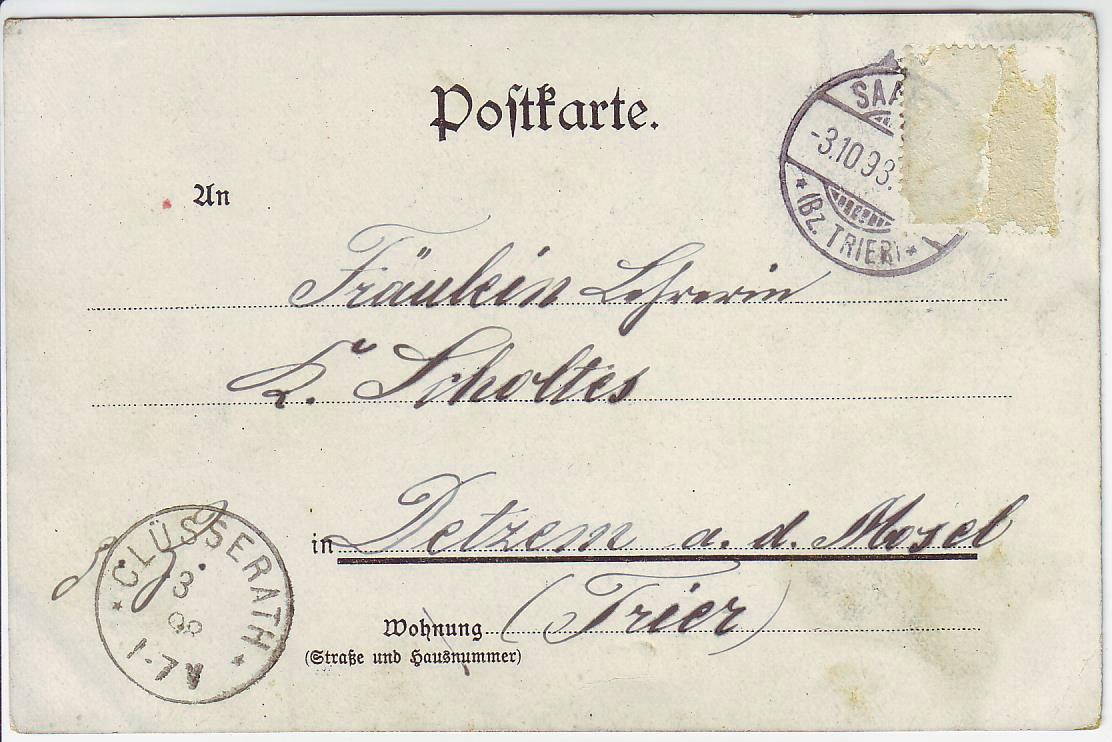 Postkarte.
SAA
-3.10.98.
*(BZ. TRIER)*
An
Fräulein Lehrerin
K. Scholtes
in Detzem a. d. Mosel
Wohnung (Trier)
(Straße und Hausnummer)
* CLÜSSERATH *
3